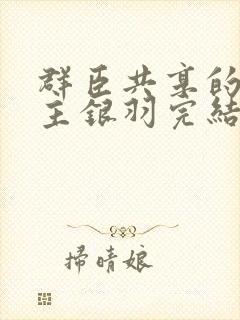 群臣共享的
主銀羽完結
掃晴娘